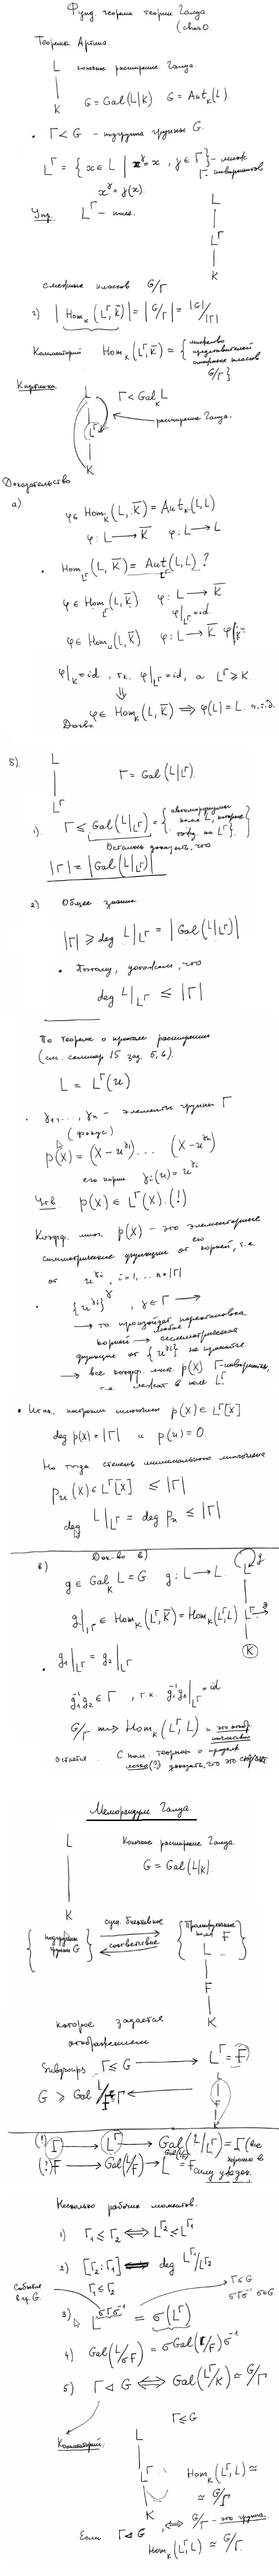 Фунд. теорема теории Галуа.
(char 0.
Теорема Артина.
L
конечное расширение Галуа.
K
G = Gal(L|K) G = Aut_K(L).
• Γ < G - подгруппа группы G.
L^Γ = { x ∈ L | x^γ = x, γ ∈ Γ } - множ. Γ-инвариантов
x^γ = γ(x).
Упр. L^Γ - поле.
L
L^Γ
K
смежных классов G/Γ
2) | Hom_K (L^Γ, K̅) | = |G/Γ| = |G|/|Γ|
Комментарий Hom_K (L^Γ, K̅) ≃ { множество представителей смежных классов G/Γ }
Картинка
L
L^Γ
K
Γ < Gal_K L
расширение Галуа.
Доказательство
а)
φ ∈ Hom_K (L, K̅) = Aut_K (L, L)
φ: L → K̅ φ: L → L
• Hom_{L^Γ} (L, K̅) = Aut (L, L) ?
φ ∈ Hom_{L^Γ} (L, K̅) φ: L → K̅
φ|_{L^Γ} = id.
φ ∈ Hom_K (L, K̅) φ: L → K̅ φ|_K =
φ|_K = id, т.к. φ|_{L^Γ} = id, а L^Γ ⩾ K.
⇓
φ ∈ Hom_K (L, K̅) ⇒ φ(L) = L. ч.т.д.
б).
L
L^Γ
Γ = Gal (L|L^Γ).
1). Γ ⩽ Gal (L|L^Γ) = { автоморфизмы поля L, которые тожд. на L^Γ }.
Осталось доказать, что
|Γ| = |Gal (L|L^Γ)|
2) Общее знание
|Γ| ⩾ deg L|L^Γ = |Gal (L|L^Γ)|
• Поэтому, докажем, что
deg L|L^Γ ⩽ |Γ|
По теореме о простом расширении
(см. семинар 15 зад. 5, 6).
L = L^Γ (u)
• γ_1, ..., γ_n - элементы группы Γ
(фокус)
p(X) = (X - u^{γ_1}) ... (X - u^{γ_n})
его корни. γ_i(u) = u^{γ_i}
Утв. p(X) ∈ L^Γ(X). (!)
Коэфф. мног. p(X) - это элементарные
симметрические функции от его корней, т.е.
от u^{γ_i}, i = 1, ... n = |Γ|
• {u^{γ_i}}^γ, γ ∈ Γ →
→ то произойдет перестановка
корней → любые симметрическая
функции от {u^{γ_i}} не изменятся.
→ все коэфф. мн. p(X) Γ-инвариантны,
т.е. лежат в поле L^Γ.
• Итак, построили многочлен p(X) ∈ L^Γ[X]
deg p(X) = |Γ| и p(u) = 0.
Но тогда степень минимального многочлена
p_u(X) ∈ L^Γ[X] ⩽ |Γ|
deg L|L^Γ = deg p_u ⩽ |Γ|
в) Док-во в).
g ∈ Gal_K L = G g: L → L.
L g
g|_{L^Γ} ∈ Hom_K (L^Γ, K̅) = Hom_K (L^Γ, L)
L^Γ g
K
• g_1|_{L^Γ} = g_2|_{L^Γ}
g_1^{-1} g_2 ∈ Γ, т.к. g_1^{-1} g_2|_{L^Γ} = id
G/Γ → Hom_K (L^Γ, L) и это отобр. инъективно
остается. С пом. теоремы о продолж. легко(?) доказать, что это сюръект.
Меморандум Галуа.
L
K
Конечное расширение Галуа.
G = Gal (L|K).
{ подгруппы группы G }
сущ. биективное
соответствие
{ Промежуточные поля F }
L
F
K
которое задается
отображением
Subgroups Γ ⩽ G → L^Γ = F
G ⩾ Gal L/F = Γ
L
F
K
(!) Γ → L^Γ → Gal (L/L^Γ) = Γ (все хорошо в
(?) F → Gal (L/F) → L^{Gal(L/F)} = F силу
Несколько рабочих моментов.
1) Γ_1 ⩽ Γ_2 ⇔ L^{Γ_2} ⩽ L^{Γ_1}
2) [Γ_2 : Γ_1] ⇔ deg L^{Γ_1}/L^{Γ_2}
Γ_1 ⩽ Γ_2
Событие в гр. G.
Γ ⩽ G
σΓσ^{-1} σ ∈ G
3) L^{σΓσ^{-1}} = σ(L^Γ)
4) Gal (L/σF) = σ Gal (L/F) σ^{-1}
5) Γ ⊲ G ⇔ Gal (L^Γ/K) ≃ G/Γ
Γ ⩽ G
Комментарий.
L
L^Γ
K
Hom_K (L^Γ, L) ≃
≃ G/Γ
Если Γ ⊲ G ⇔ G/Γ - это группа.
Hom_K (L^Γ, L) ≃ G/Γ.